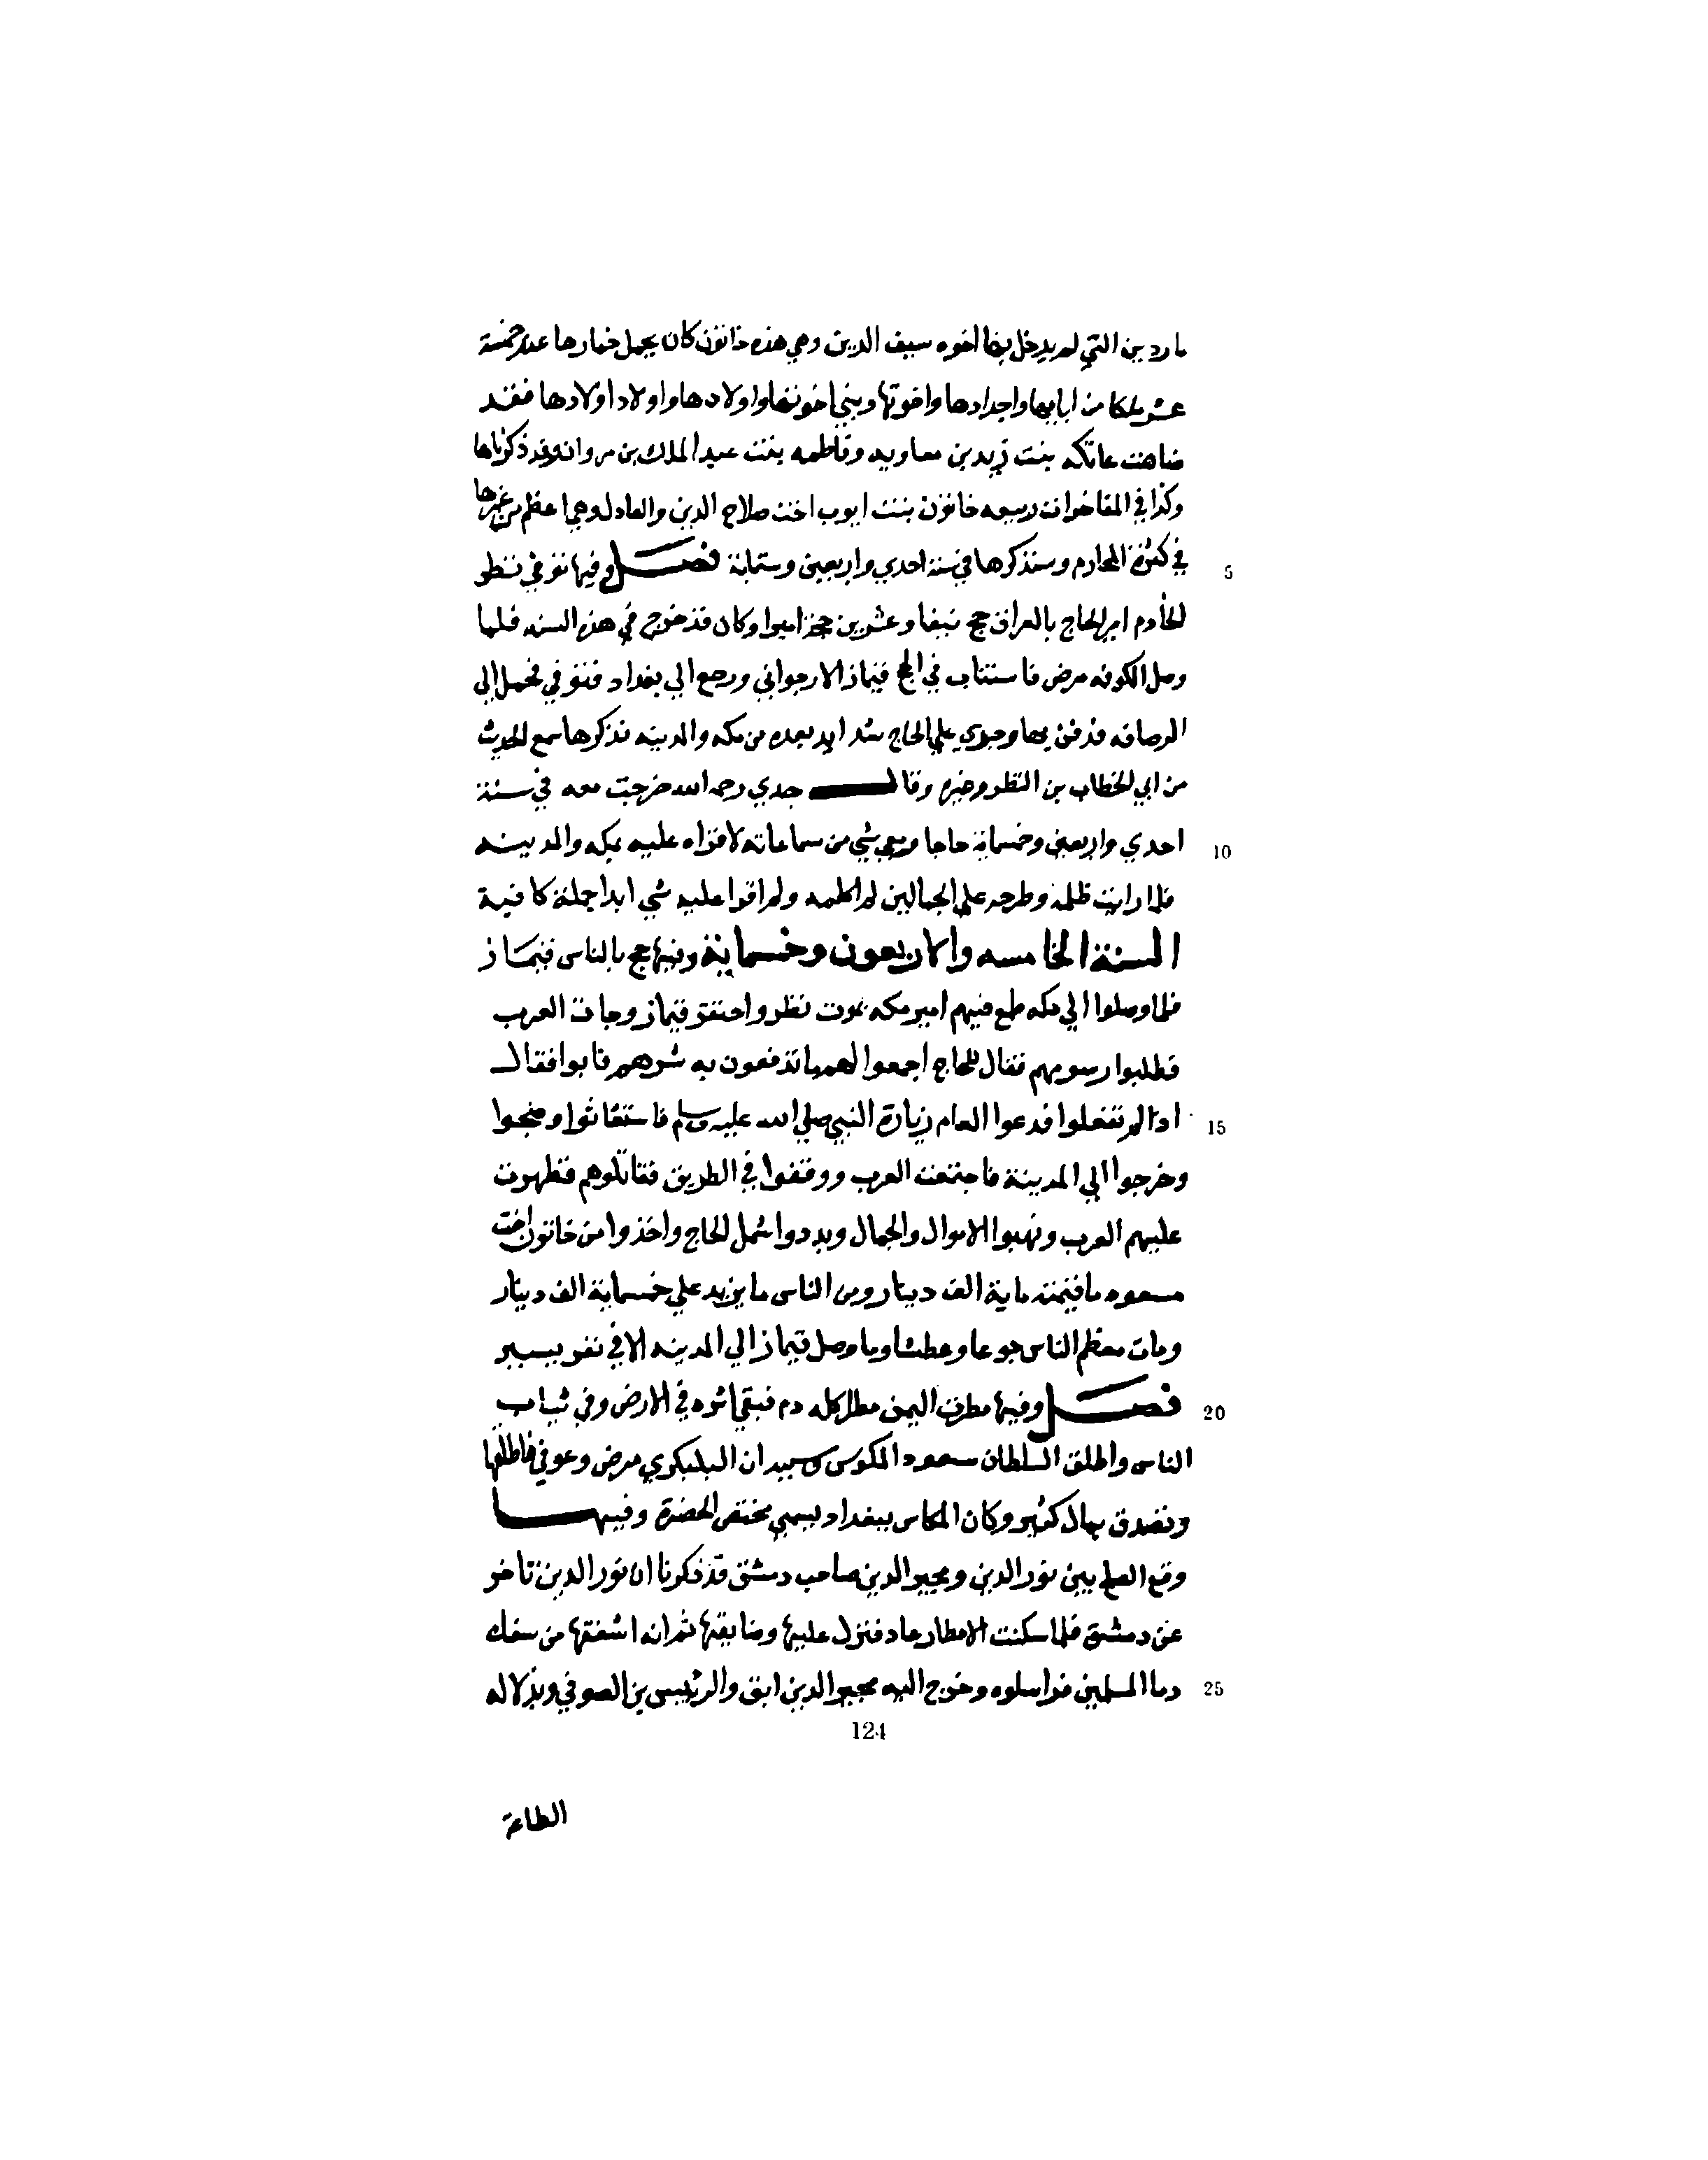 ماردين التي لم يدخل بها اخوه سيف الدين وهي هذه خاتون كان يحمل خمارها عند خمسة
عشر ملكا من ابايها واجدادها واخوتها وبني اخوتها واولادها واولاد اولادها فقد
ضاهت عاتكه بنت يزيد بن معاويه وفاطمه بنت عبد الملك بن مروان وقد ذكرناها
وكذا في المفاخر ربيعه خاتون بنت ايوب اخت صلاح الدين والعادل وهي اعظم من غيرها
في كثرة المحارم وسنذكرها في سنة احدي واربعين وستماية فصل وفيها توفي نظر
الخادم امير الحاج بالعراق حج نيفا وعشرين حجة اميرا وكان قد خرج في هذه السنه فلما
وصل الكوفه مرض فاستناب في الحج قيماز الارجواني ورجع الي بغداد فتوفي فحمل الي
الرصافه فدفن بها وجري علي الحاج شدايد بعده من مكه والمدينه نذكرها سمع الحديث
من ابي الخطاب بن النظر وغيره وقال جدي رحمه الله خرجت معه في سنة
احدي واربعين وخمسماية حاجا ومعي شي من سماعاته لاقراه عليه بمكه والمدينه
فلما رايت ظلمه وطرحه علي الجمالين لم اكلمه ولم اقرا عليه شي ابدا جملة كافية
السنة الخامسه والاربعون وخمسماية وفيها حج بالناس قيماز
فلما وصلوا الي مكه طمع فيهم امير مكه بموت نظر واحتقر قيماز وجات العرب
فطلبوا رسومهم فقال للحاج اجمعوا لهم ما تدفعون به شرهم فابوا فقال
اذا لم تفعلوا فدعوا العام زيارة النبي صلي الله عليه وسلم فاستغاثوا وضجوا
وخرجوا الي المدينة فاجتمعت العرب ووقفوا في الطريق فقاتلوهم فظهرت
عليهم العرب ونهبوا الاموال والجمال وبددوا شمل الحاج واخذوا من خاتون اخت
مسعود ما قيمته ماية الف دينار ومن الناس ما يزيد علي خمسماية الف دينار
ومات معظم الناس جوعا وعطشا وما وصل قيماز الي المدينه الا في نفر يسير
فصل وفيها مطرت اليمن مطرا كله دم فبقي اثره في الارض وفي ثياب
الناس واطلق السلطان مسعود المكوس وسببه ان البلنكري مرض وعوفي فاطلقها
وتصدق بمال كثير وكان المكاس ببغداد يسمي مختص الحضرة وفيها
وقع الصلح بين نور الدين ومجير الدين صاحب دمشق قد ذكرنا ان نور الدين تاخر
عن دمشق فلما سكنت الامطار عاد فنزل عليها وضايقها ثم انه اشفقها من سفك
دما المسلمين فراسلوه وخرج اليه مجير الدين ابق والرئيس بن الصوفي وبذلا له
5
10
15
20
25
124
الطاعة